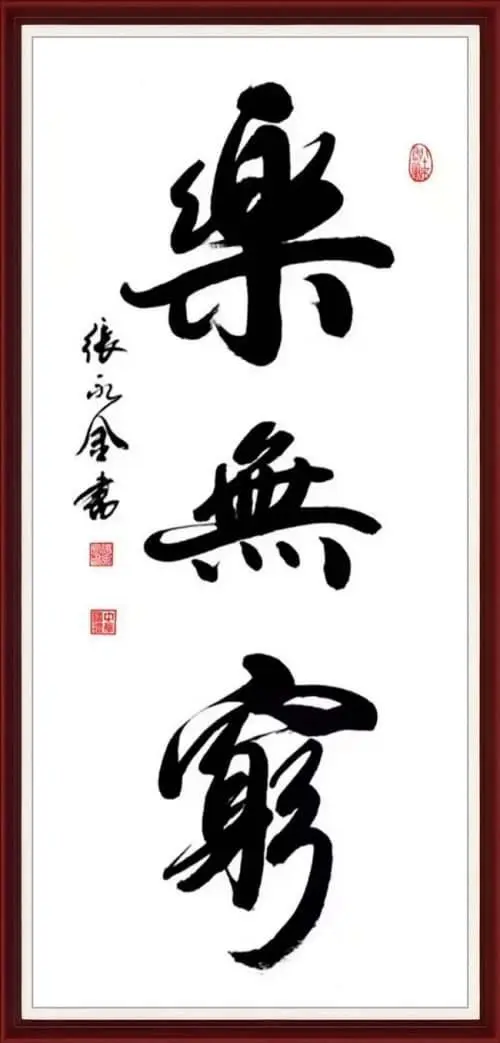 樂無窮
張永金書